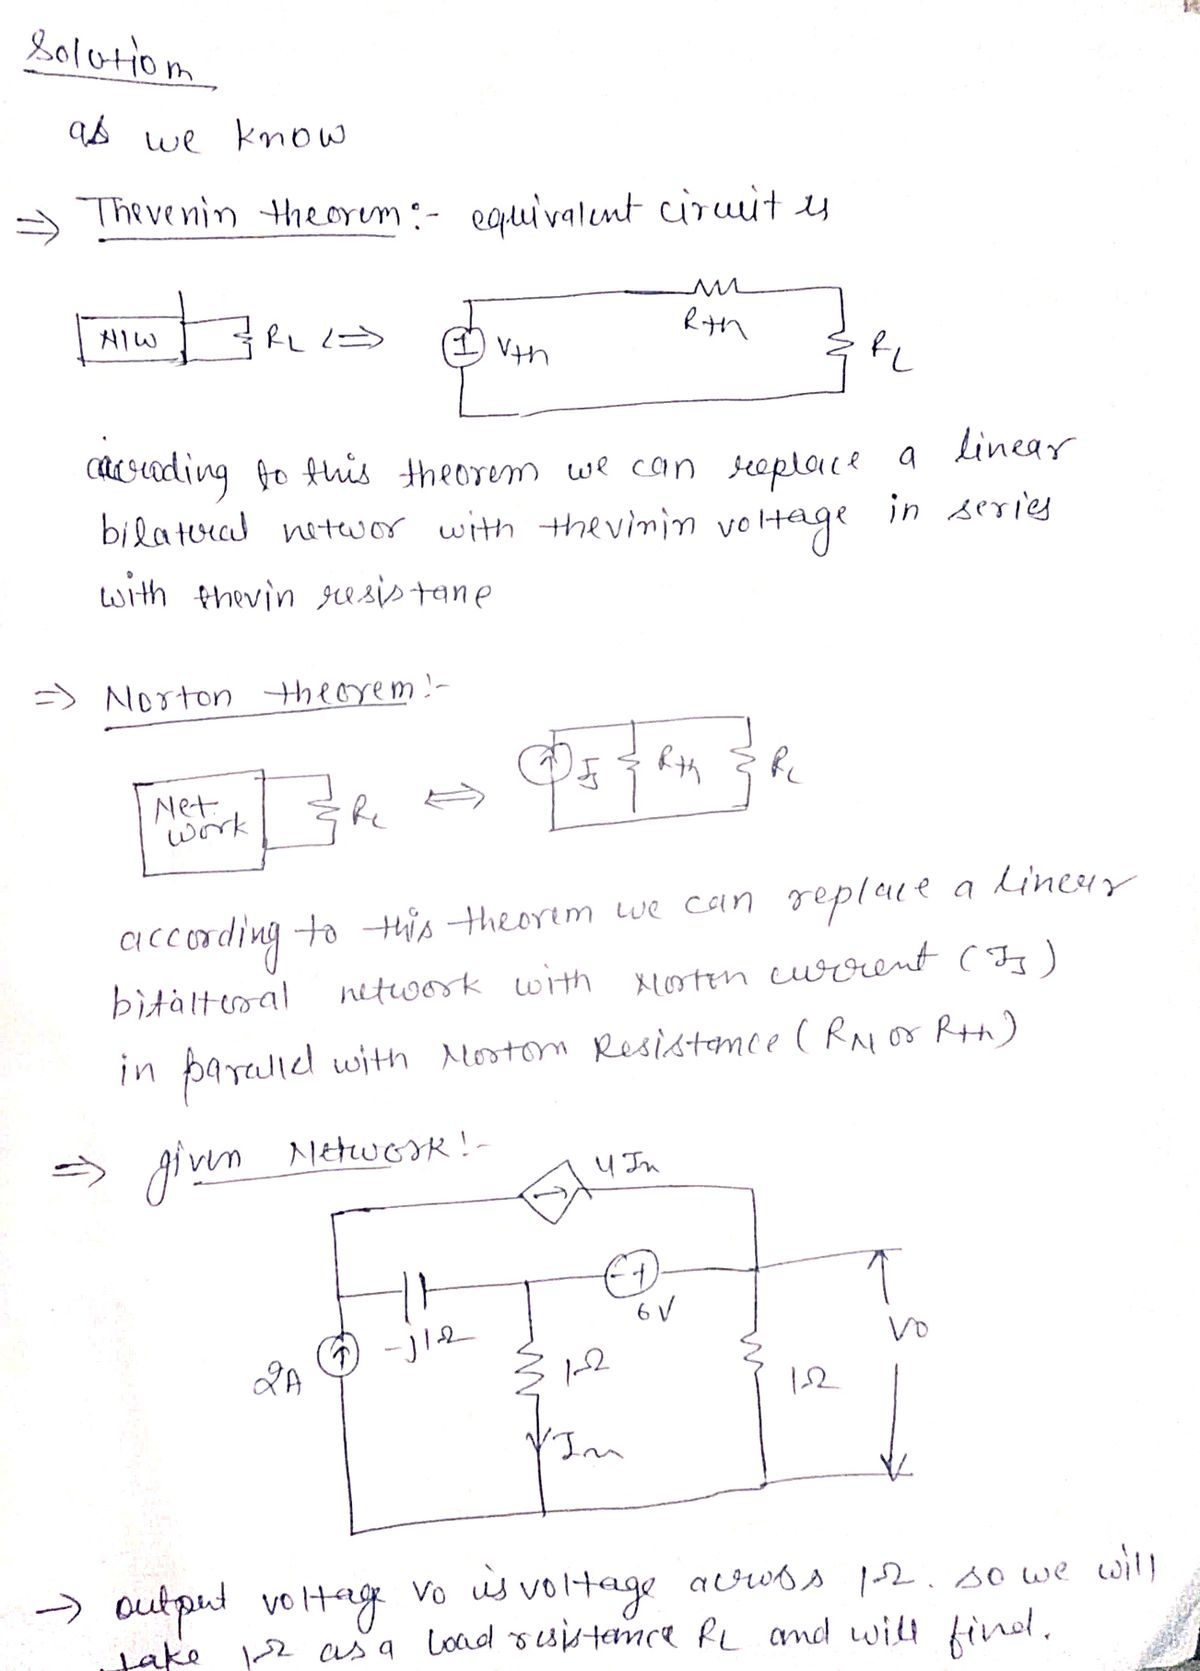 Solution
as we know
⇒ Thevenin theorem:- equivalent circuit is
N/W RL <=> Vth Rth RL
according to this theorem we can replace a linear
bilateral networ with thevinin voltage in series
with thevin resistane
⇒ Norton theorem:-
Net
work RL <=> Rth RL
according to this theorem we can replace a linear
network with Norton current
in parallel with Norton Resistance (RN or Rth)
⇒ given Network:-
4In
6V
-j1Ω
2A
1Ω
1Ω
Vo
→ output voltage Vo is voltage across 1Ω. so we will
take 1Ω as a load resistance RL and will find.